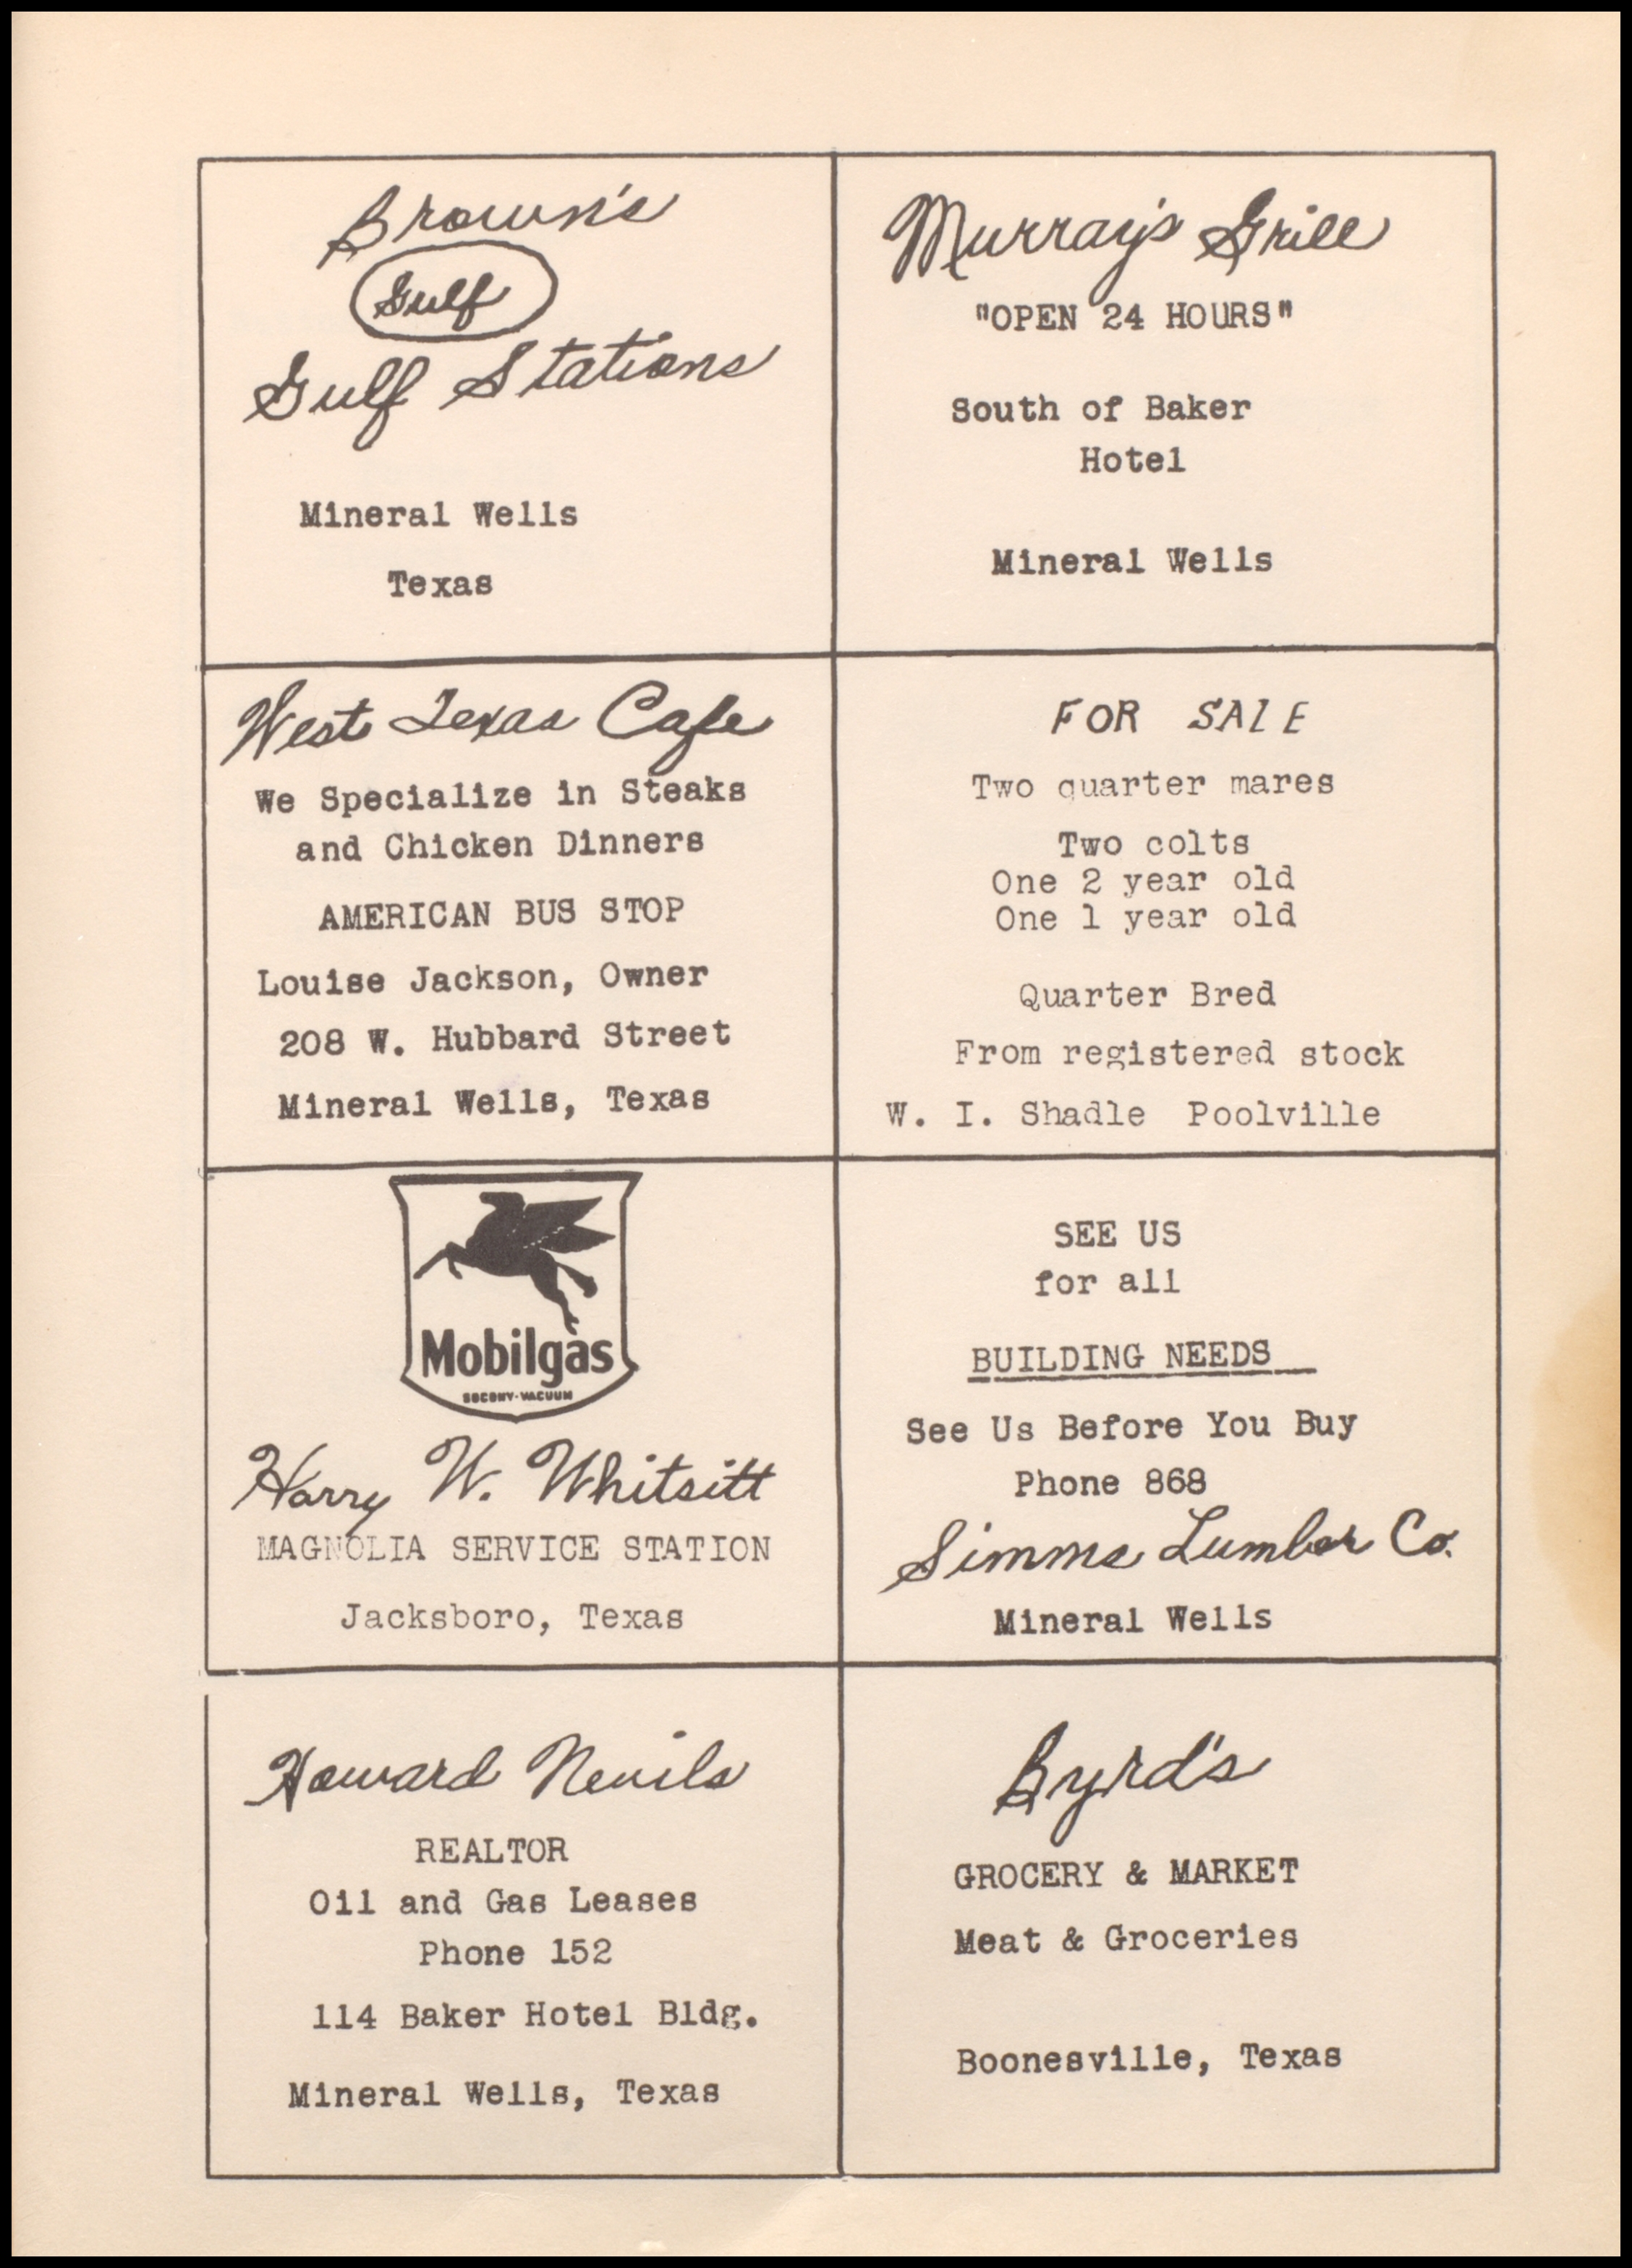 Brown's
Gulf
Gulf Stations
Mineral Wells
Texas
Murray's Grill
"OPEN 24 HOURS"
South of Baker
Hotel
Mineral Wells
West Texas Cafe
We Specialize in Steaks
and Chicken Dinners
AMERICAN BUS STOP
Louise Jackson, Owner
208 W. Hubbard Street
Mineral Wells, Texas
FOR SALE
Two quarter mares
Two colts
One 2 year old
One 1 year old
Quarter Bred
From registered stock
W. I. Shadle Poolville
Mobilgas
SOCONY-VACUUM
Harry W. Whitsitt
MAGNOLIA SERVICE STATION
Jacksboro, Texas
SEE US
for all
BUILDING NEEDS
See Us Before You Buy
Phone 868
Simms Lumber Co.
Mineral Wells
Howard Nevils
REALTOR
Oil and Gas Leases
Phone 152
114 Baker Hotel Bldg.
Mineral Wells, Texas
Byrd's
GROCERY & MARKET
Meat & Groceries
Boonesville, Texas